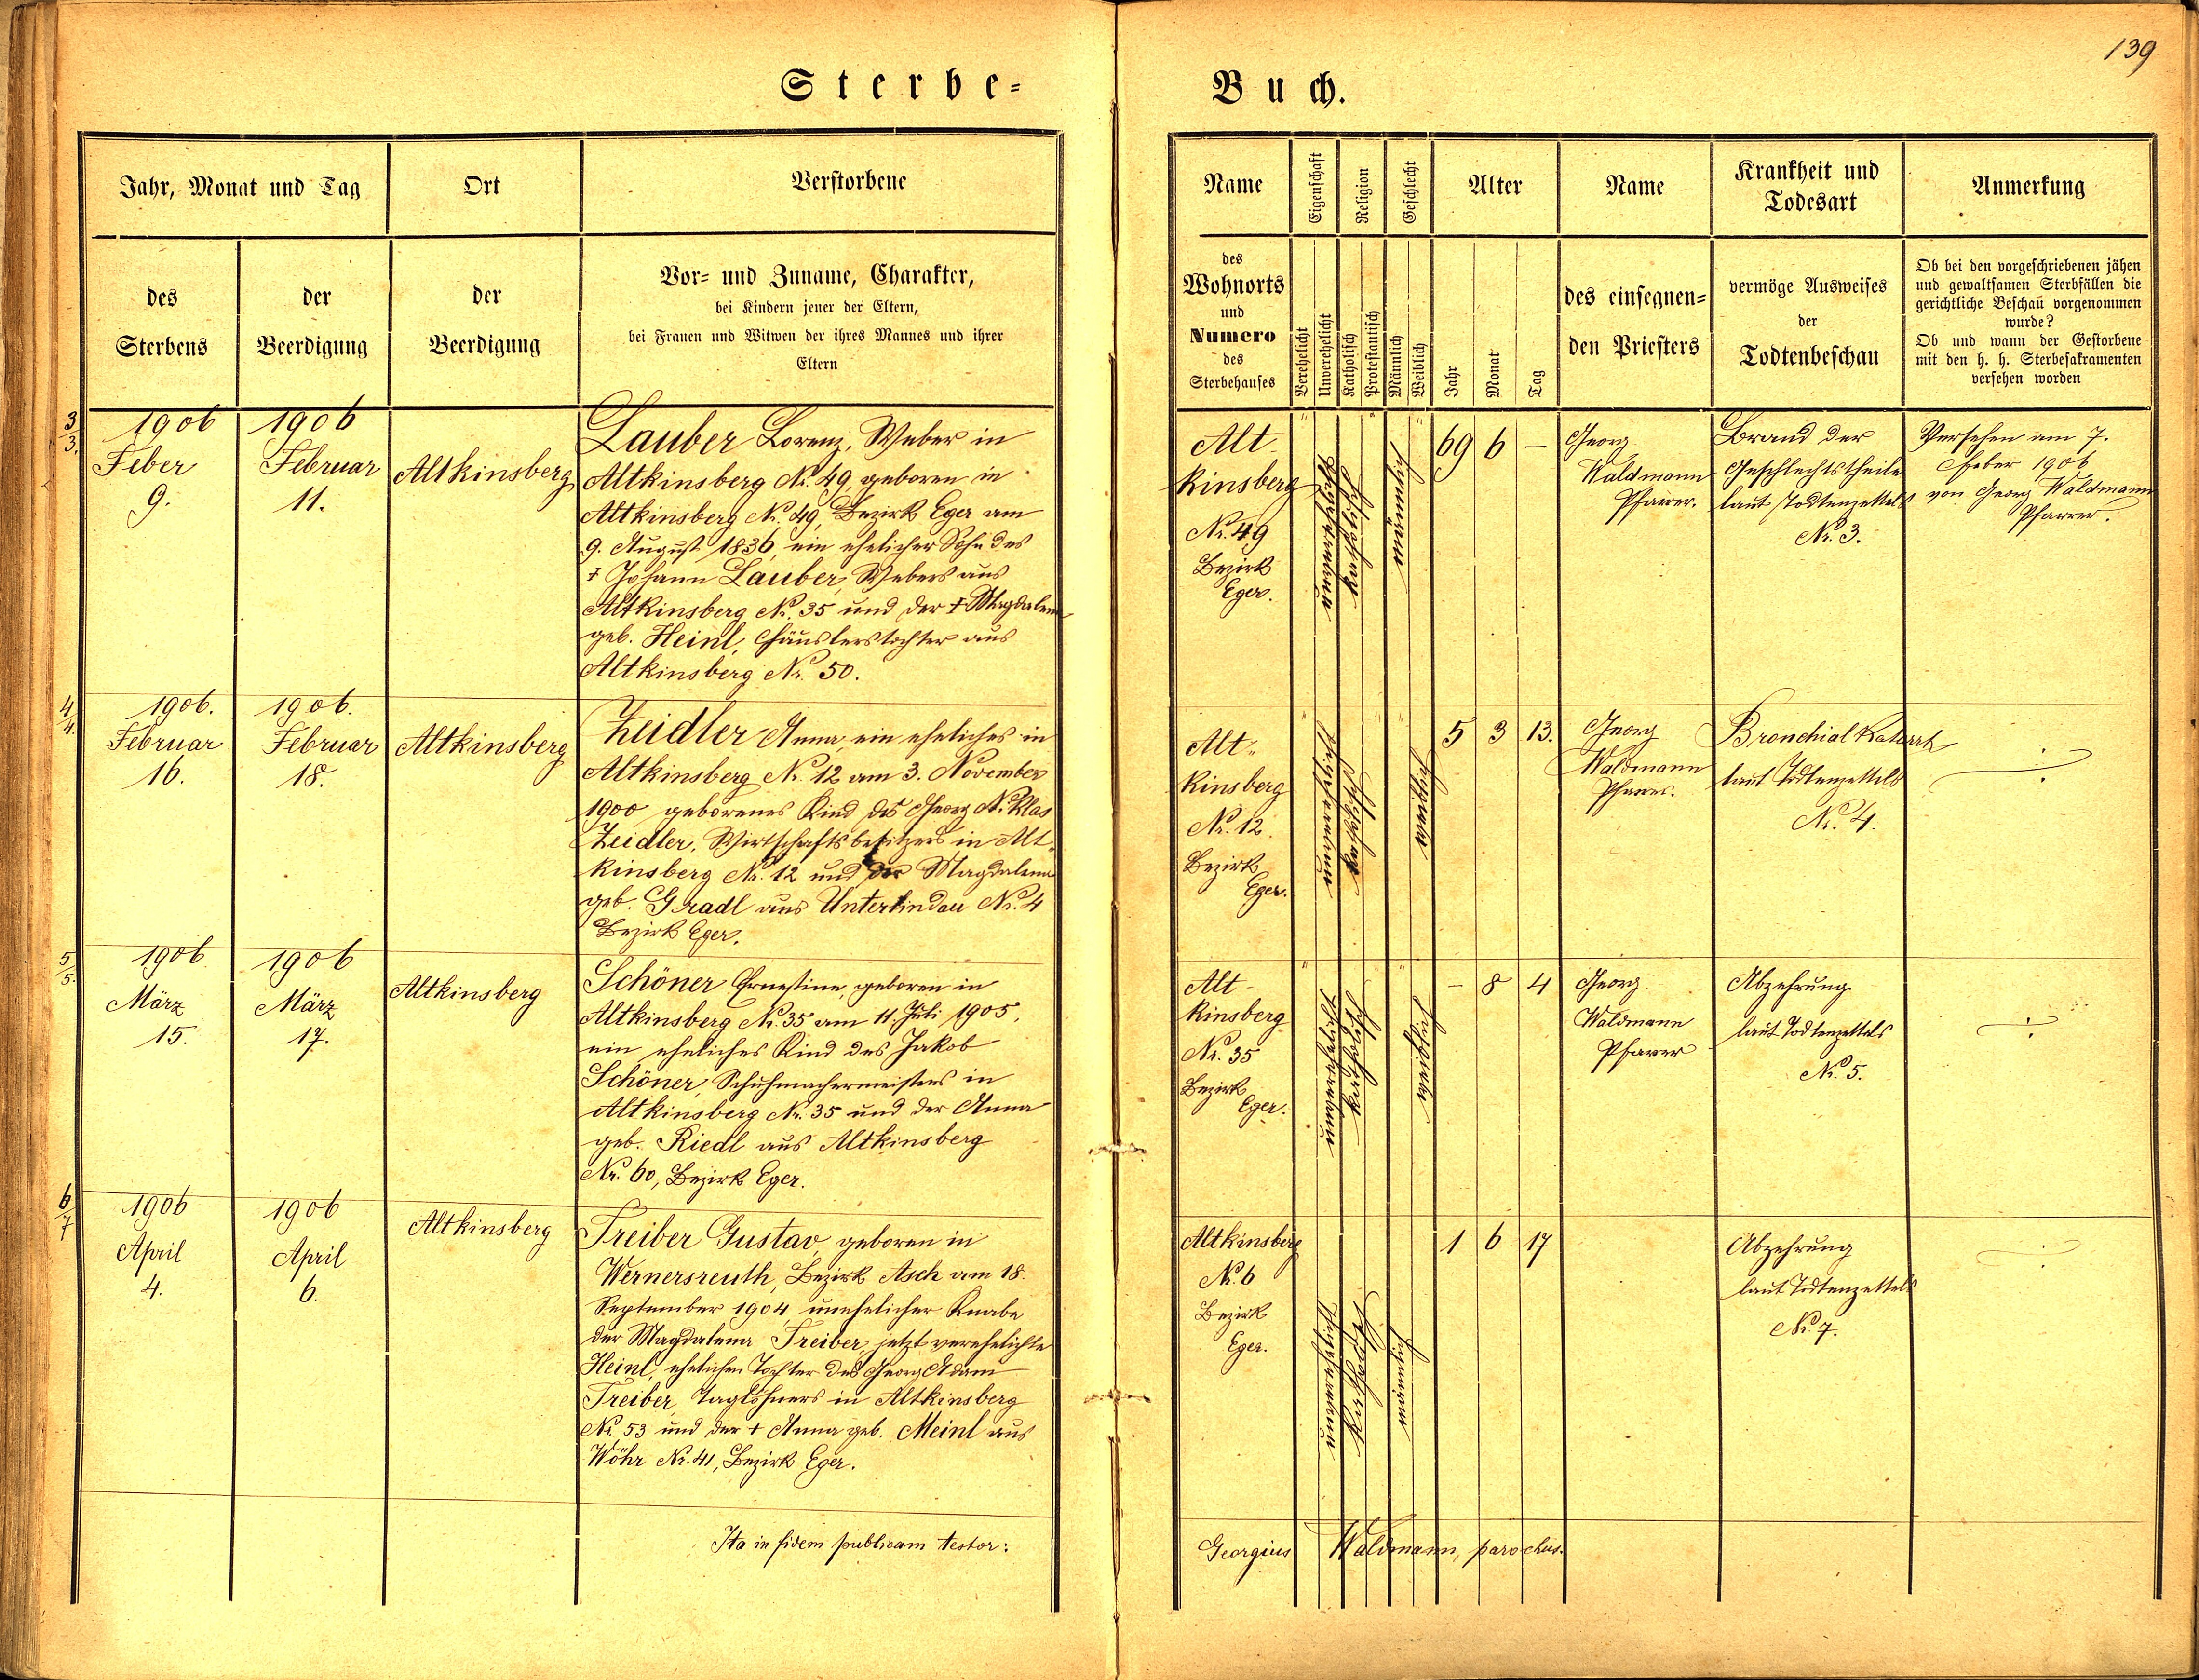 139
Sterbe-
Buch.
Jahr, Monat und Tag
Ort
Verstorbene
des
Sterbens
der
Beerdigung
der
Beerdigung
Vor- und Zuname, Charakter,
bei Kindern jener der Eltern,
bei Frauen und Witwen der ihres Mannes und ihrer
Eltern
Name
Eigenschaft
Religion
Geschlecht
Alter
Name
Krankheit und
Todesart
Anmerkung
des
Wohnorts
und
Numero
des
Sterbehauses
Verehelicht
Unverehelicht
Katholisch
Protestantisch
Männlich
Weiblich
Jahr
Monat
Tag
des einsegnen-
den Priesters
vermöge Ausweises
der
Todtenbeschau
Ob bei den vorgeschriebenen jähen
und gewaltsamen Sterbfällen die
gerichtliche Beschau vorgenommen
wurde?
Ob und wann der Gestorbene
mit den h. h. Sterbesakramenten
versehen worden
3/3.
1906
Feber
9.
1906
Februar
11.
Altkinsberg
Lauber Lorenz, Weber in
Altkinsberg Nr. 49, geboren in
Altkinsberg Nr. 49, Bezirk Eger am
9. August 1836, ein ehelicher Sohn des
† Johann Lauber, Webers aus
Altkinsberg Nr. 35 und der † Magdalena
geb. Heinl, Häuslerstochter aus
Altkinsberg Nr. 50.
Alt-
kinsberg
Nr. 49
Bezirk
Eger.
katholisch
männlich
69 6 –
Georg
Waldmann
Pfarrer.
Brand der
Geschlechtstheile
laut Todtenzettels
Nr. 3.
Versehen am 7.
Feber 1906
von Georg Waldmann
Pfarrer.
4/4.
1906.
Februar
16.
1906.
Februar
18.
Altkinsberg
Zeidler Anna, ein eheliches in
Altkinsberg Nr. 12 am 3. November
1900 geborenes Kind des Georg Niklas
Zeidler, Wirtschaftsbesitzers in Alt-
kinsberg Nr. 12 und der Magdalena
geb. Gradl aus Unterlindau Nr. 4
Bezirk Eger.
Alt-
kinsberg
Nr. 12.
Bezirk
Eger.
unverehelicht
katholisch
weiblich
5 3 13.
Georg
Waldmann
Pfarrer.
Bronchial Katarrh
laut Todtenzettels
Nr. 4.
5/5.
1906
März
15.
1906
März
17.
Altkinsberg
Schöner Ernestine, geboren in
Altkinsberg Nr. 35 am 11. Juli 1905,
ein eheliches Kind des Jakob
Schöner, Schuhmachermeisters in
Altkinsberg Nr. 35 und der Anna
geb. Riedl aus Altkinsberg
Nr. 60, Bezirk Eger.
Alt-
kinsberg
Nr. 35
Bezirk
Eger.
unverehelicht
katholisch
weiblich
– 8 4
Georg
Waldmann
Pfarrer
Abzehrung
laut Todtenzettels
Nr. 5.
6/7
1906
April
4.
1906
April
6.
Altkinsberg
Treiber Gustav, geboren in
Wernersreuth, Bezirk Asch am 18.
September 1904, unehelicher Knabe
der Magdalena Treiber, jetzt verehelichte
Heinl, ehelichen Tochter des Georg Adam
Treiber, Taglöhners in Altkinsberg
Nr. 53 und der † Anna geb. Meinl aus
Wöhr Nr. 41, Bezirk Eger.
Altkinsberg
Nr. 6
Bezirk
Eger.
unverehelicht
katholisch
männlich
1 6 17
Abzehrung
laut Todtenzettels
Nr. 7.
Ita in fidem publicam testor:
Georgius Waldmann, parochus.